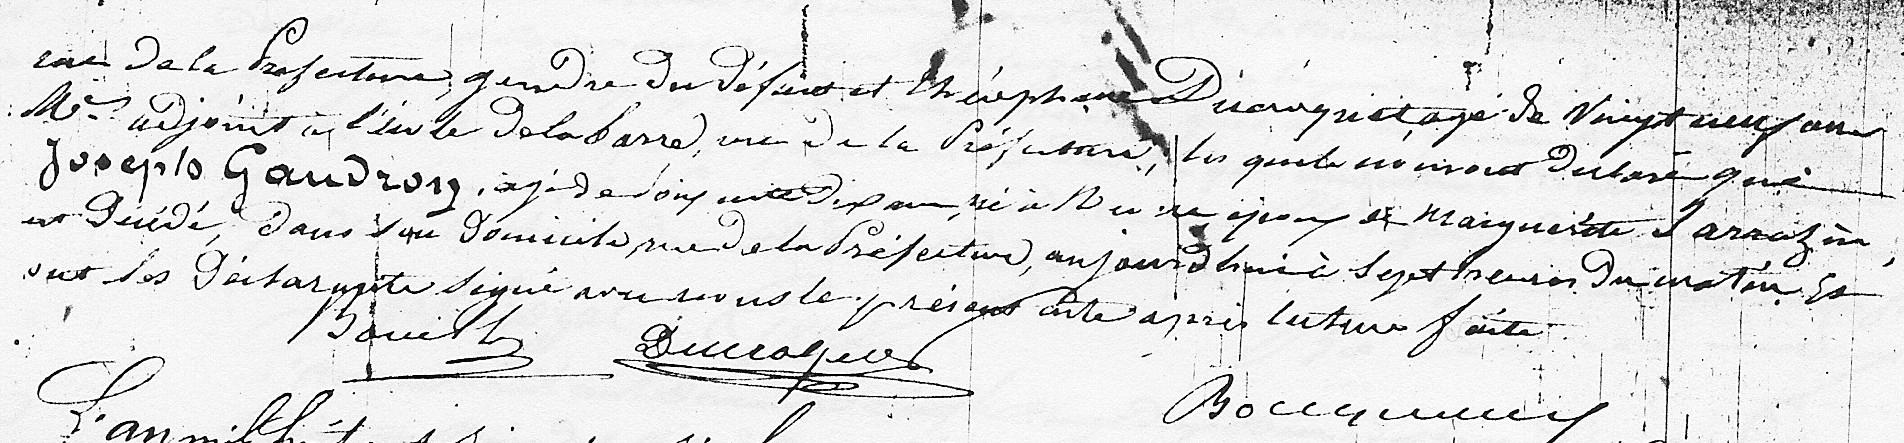 rue de la Préfecture, gendre du défunt et Théophile Ducroquet agé de Vingt neuf ans
Mtre adjoint à l'école de la barre, rue de la Préfecture, les quels nous ont déclaré que
Joseph Gaudron, agé de soixante dix ans, né à époux de Marguerite Sarrazin,
est Décédé, dans son Domicile, rue de la Préfecture, aujourd'hui à Sept heures du matin. Et
ont les Déclarants signé avec nous le présent acte après lecture faite
Ducroquet
L'an mil huit